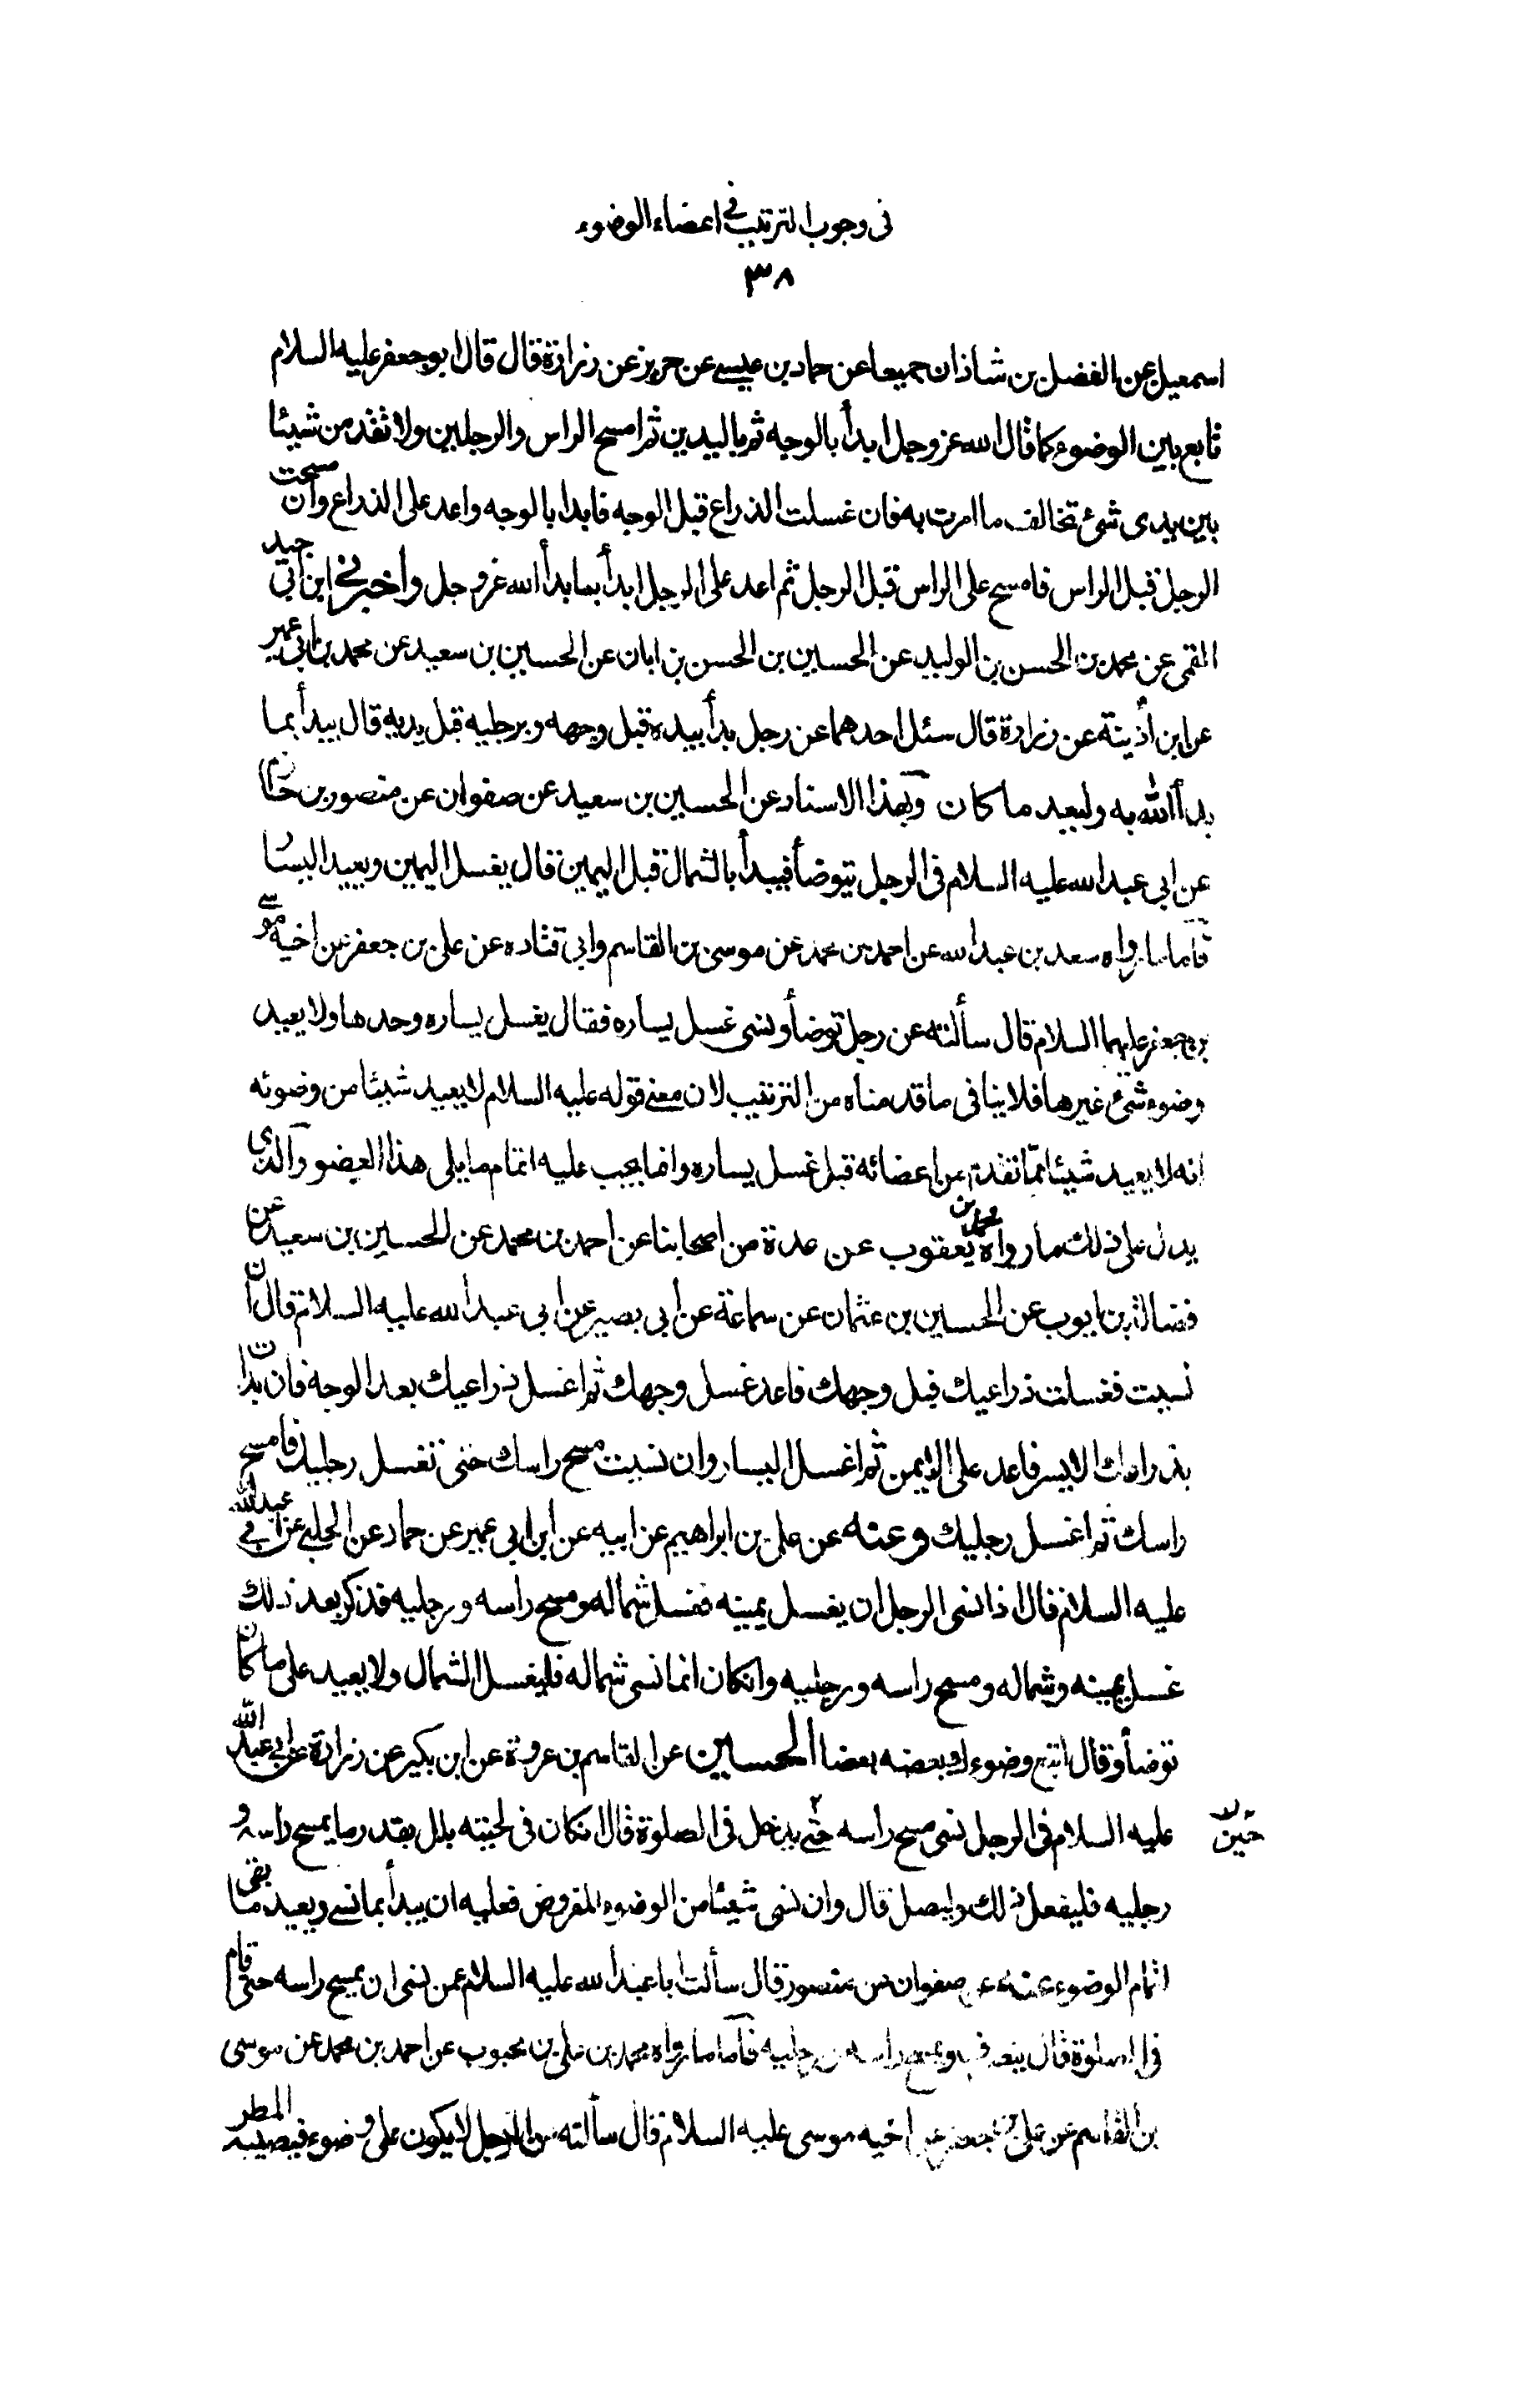 فى وجوب الترتيب في اعضاء الوضوء
٣٨
اسمعيل عن الفضل بن شاذان جميعا عن حماد بن عيسى عن حريز عن زرارة قال قال ابو جعفر عليه السلام
تابع بين الوضوء كما قال الله عز وجل ابدأ بالوجه ثم باليدين ثم امسح الراس والرجلين ولا تقدمن شيئا
بين يدى شئ تخالف ما امرت به فان غسلت الذراع قبل الوجه فابدا بالوجه واعد على الذراع وان مسحت
الرجل قبل الراس فامسح على الراس قبل الرجل ثم اعد على الرجل ابدأ بما بدأ الله عز وجل وأخبرني ابن أبي جيد
القمى عن محمد بن الحسن بن الوليد عن الحسين بن الحسن بن ابان عن الحسين بن سعيد عن محمد بن ابي عمير
عن ابن أذينة عن زرارة قال سئل احدهما عن رجل بدأ بيده قبل وجهه وبرجليه قبل يديه قال يبدأ بما
بدأ الله به وليعد ما كان وبهذا الاسناد عن الحسين بن سعيد عن صفوان عن منصور بن حازم
عن ابى عبد الله عليه السلام فى الرجل يتوضأ فيبدأ بالشمال قبل اليمين قال يغسل اليمين ويعيد اليسار
فأما ما رواه سعد بن عبد الله عن احمد بن محمد عن موسى بن القاسم وابى قتاده عن على بن جعفر عن اخيه موسى
بن جعفر عليهما السلام قال سألته عن رجل توضأ ونسى غسل يساره فقال يغسل يساره وحدها ولا يعيد
وضوء شئ غيرها فلا ينافى ما قدمناه من الترتيب لان معنى قوله عليه السلام لا يعيد شيئا من وضوئه
انه لا يعيد شيئا مما تقدم من اعضائه قبل غسل يساره وانما يجب عليه اتمام ما يلى هذا العضو والذى
يدل على ذلك ما رواه محمد بن يعقوب عن عدة من اصحابنا عن احمد بن محمد عن الحسين بن سعيد عن
فضالة بن ايوب عن الحسين بن عثمان عن سماعة عن أبى بصير عن ابى عبد الله عليه السلام قال ان
نسيت فغسلت ذراعيك قبل وجهك فاعد غسل وجهك ثم اغسل ذراعيك بعد الوجه فان بدأت
بذراعك الايسر فاعد على الايمن ثم اغسل اليسار وان نسيت مسح راسك حتى تغسل رجليك فامسح
راسك ثم اغسل رجليك وعنه عن على بن ابراهيم عن ابيه عن ابن ابى عمير عن حماد عن الحلبي عن ابي عبد الله
عليه السلام قال اذا نسى الرجل ان يغسل يمينه فغسل شماله ومسح راسه ورجليه فذكر بعد ذلك
غسل يمينه وشماله ومسح راسه ورجليه وانكان انما نسى شماله فليغسل الشمال ولا يعيد على ما كان
توضأ وقال اتبع وضوءك بعضه بعضا الحسين عن القاسم بن عروة عن ابن بكير عن زرارة عن ابي عبد الله
عليه السلام فى الرجل نسى مسح راسه حتى يدخل فى الصلوة قال انكان فى لحيته بلل بقدر ما يمسح راسه و
رجليه فليفعل ذلك وليصل قال وان نسى شيئا من الوضوء المفروض فعليه ان يبدأ بما نسى ويعيد ما بقى
اتمام الوضوء عنه عن صفوان عن منصور قال سألت ابا عبد الله عليه السلام عمن نسى ان يمسح راسه حتى قام
فى الصلوة قال ينصرف ويمسح راسه ورجليه فأما ما رواه محمد بن على بن محبوب عن احمد بن محمد عن موسى
بن القاسم عن على بن جعفر عن اخيه موسى عليه السلام قال سألته عن الرجل لا يكون على وضوء فيصيبه المطر